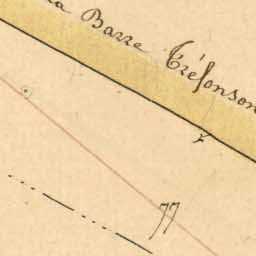 la Barre Tréfonson
77